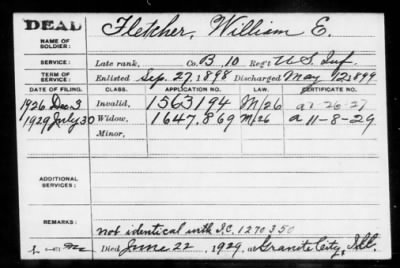 DEAD
NAME OF SOLDIER: Fletcher, William E.
SERVICE: Late rank, Co. B, 10 Reg't U.S. Inf.
TERM OF SERVICE: Enlisted Sep. 27, 1898 Discharged May 12, 1899
DATE OF FILING. CLASS. APPLICATION NO. LAW. CERTIFICATE NO.
1926 Dec 3 Invalid, 1563194 M/26 a 1-26-27
1929 July 30 Widow, 1647.869 M/26 a 11-8-29
Minor,
ADDITIONAL SERVICES:
REMARKS: not identical with I.C. 1270350
Died June 22, 1929, at Granite City, Ill.